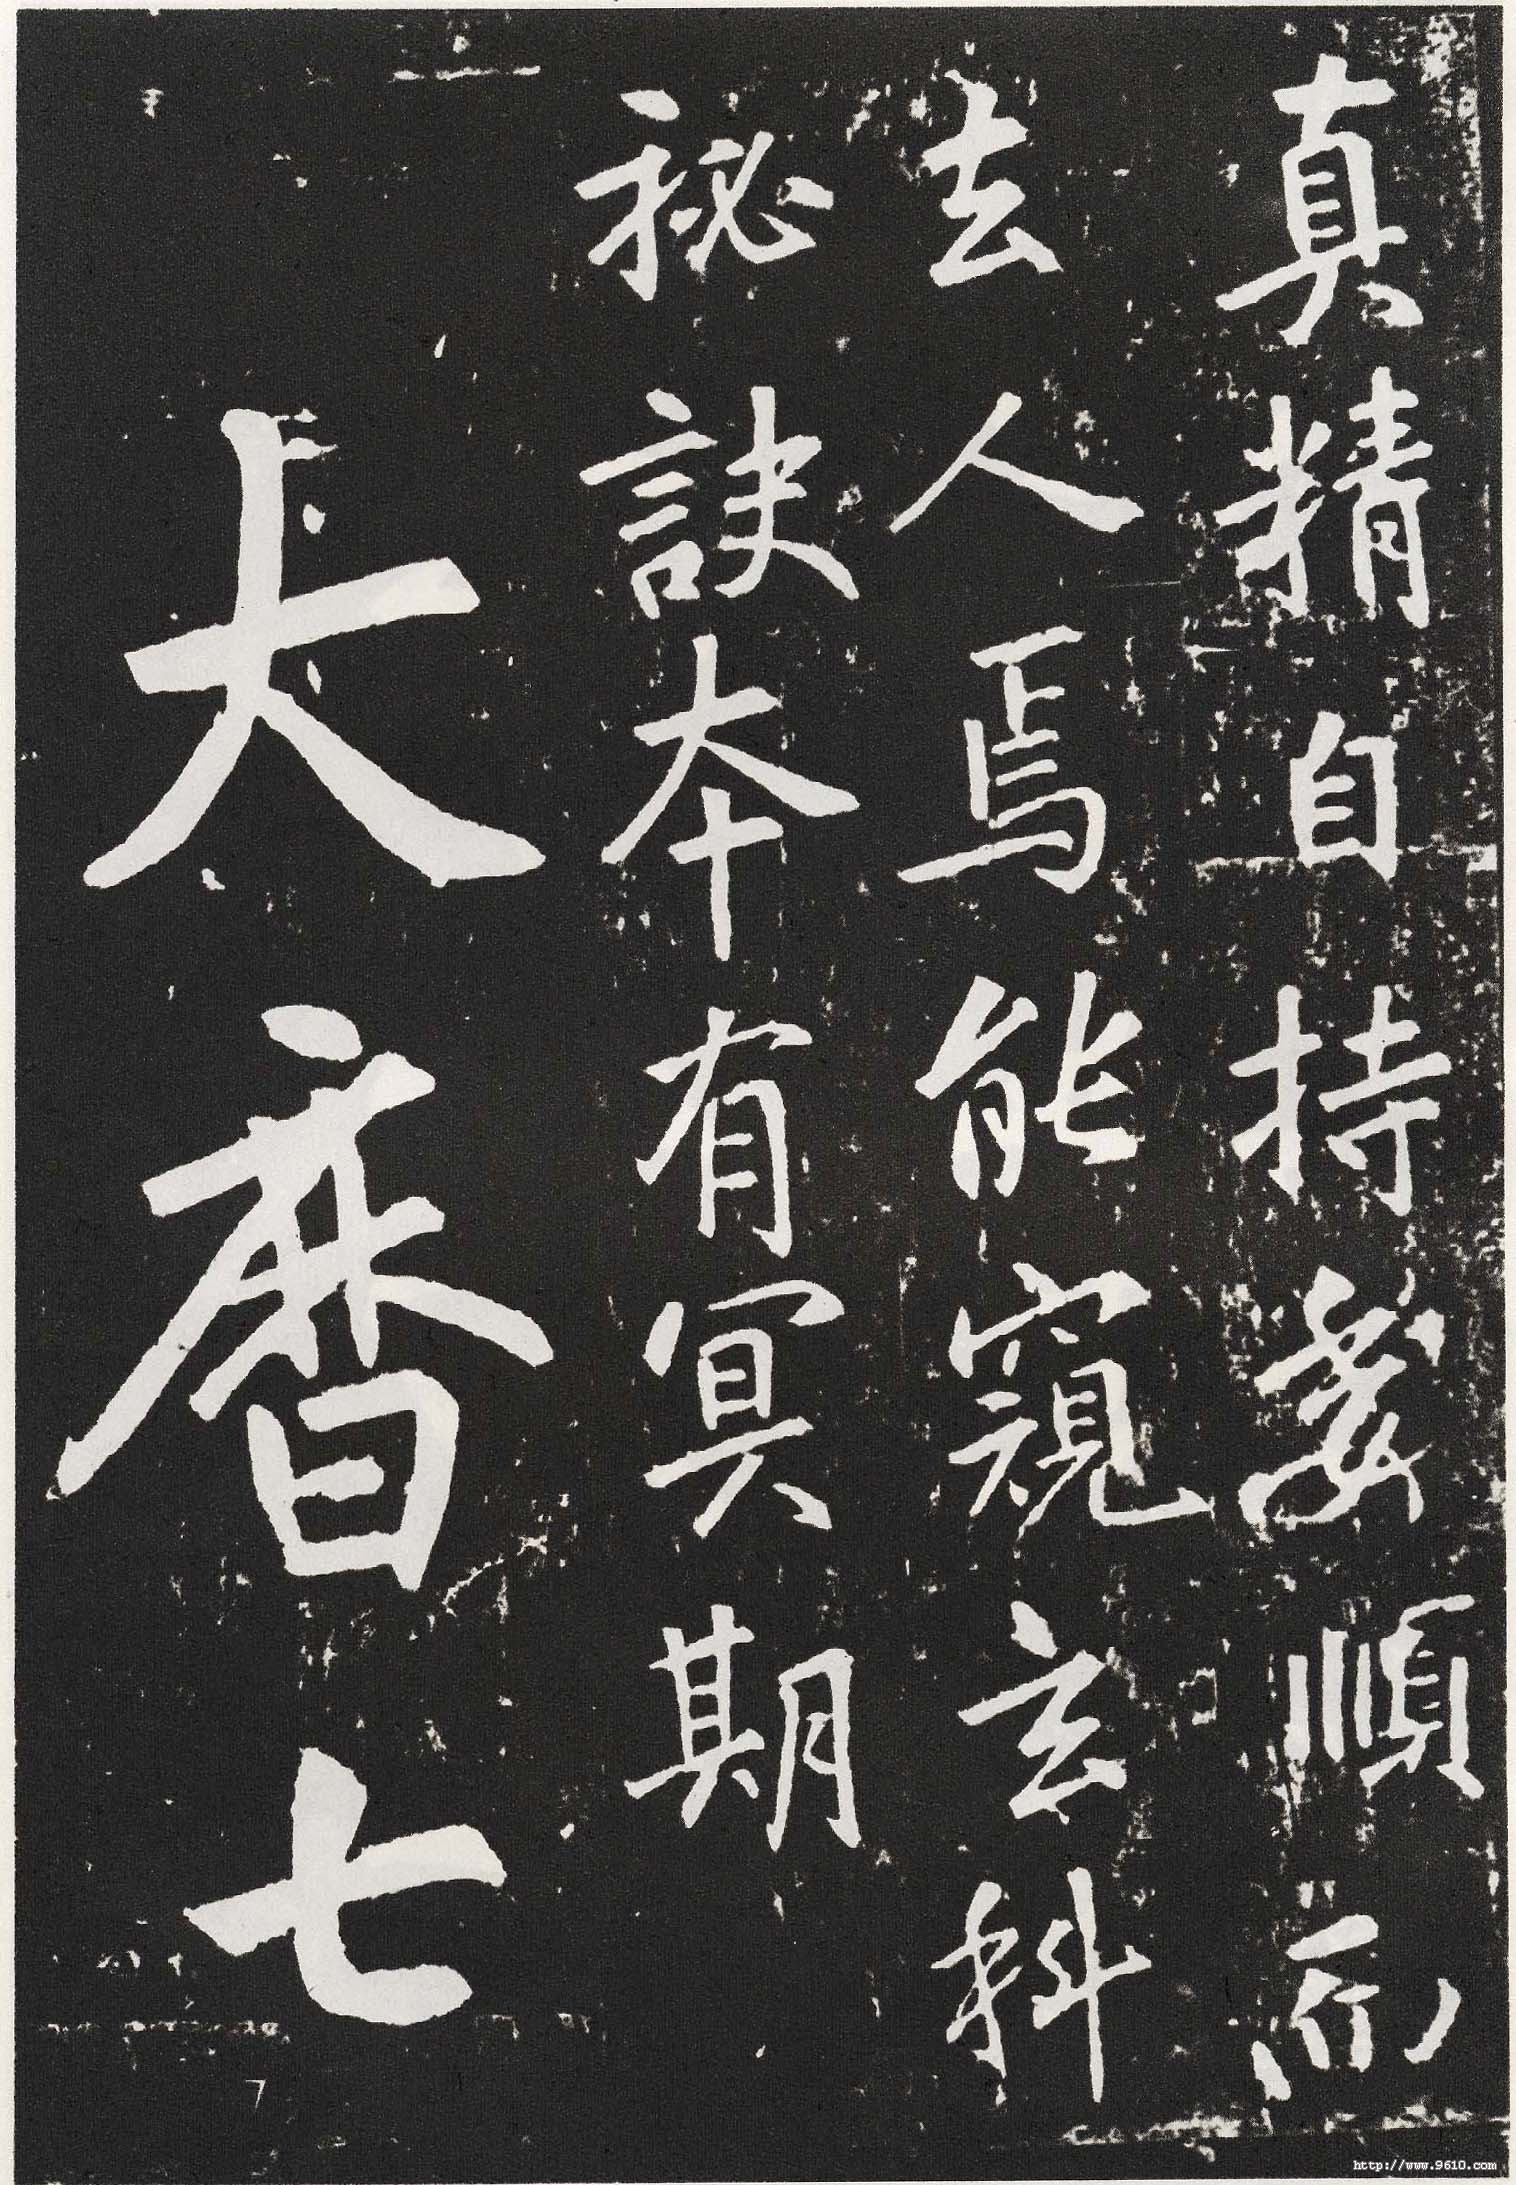 真精自持委順而
去人焉能窺玄科
祕訣本有冥期
大曆七
7
http://www.9610.com